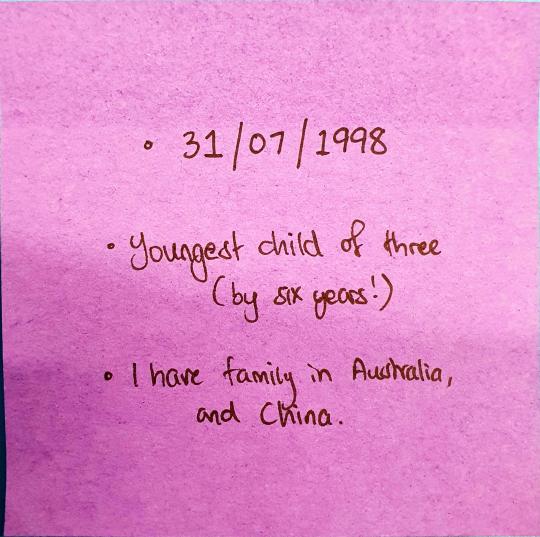 • 31/07/1998
• Youngest child of three
(by six years!)
• I have family in Australia,
and China.